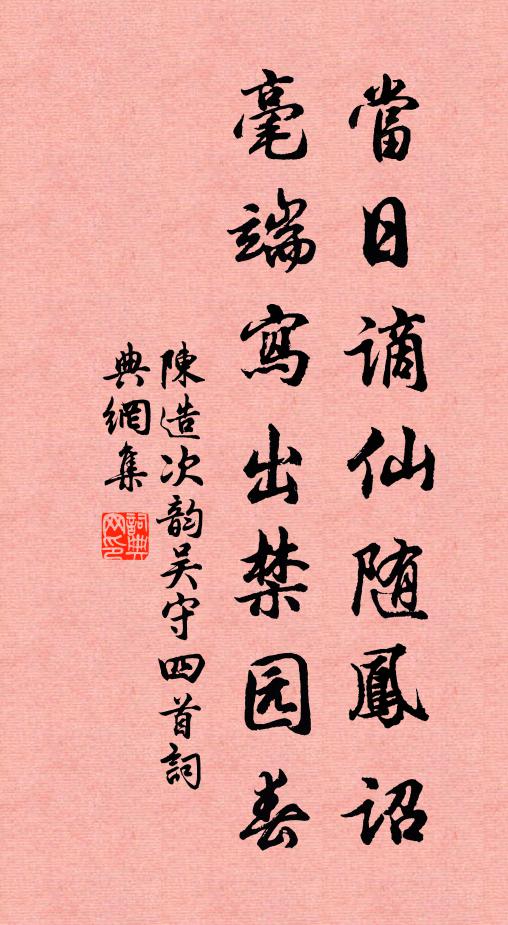 當日謫仙随鳳詔
毫端寫出禁园春
陳造次韵吴守四首詞
典網集
詞典網印